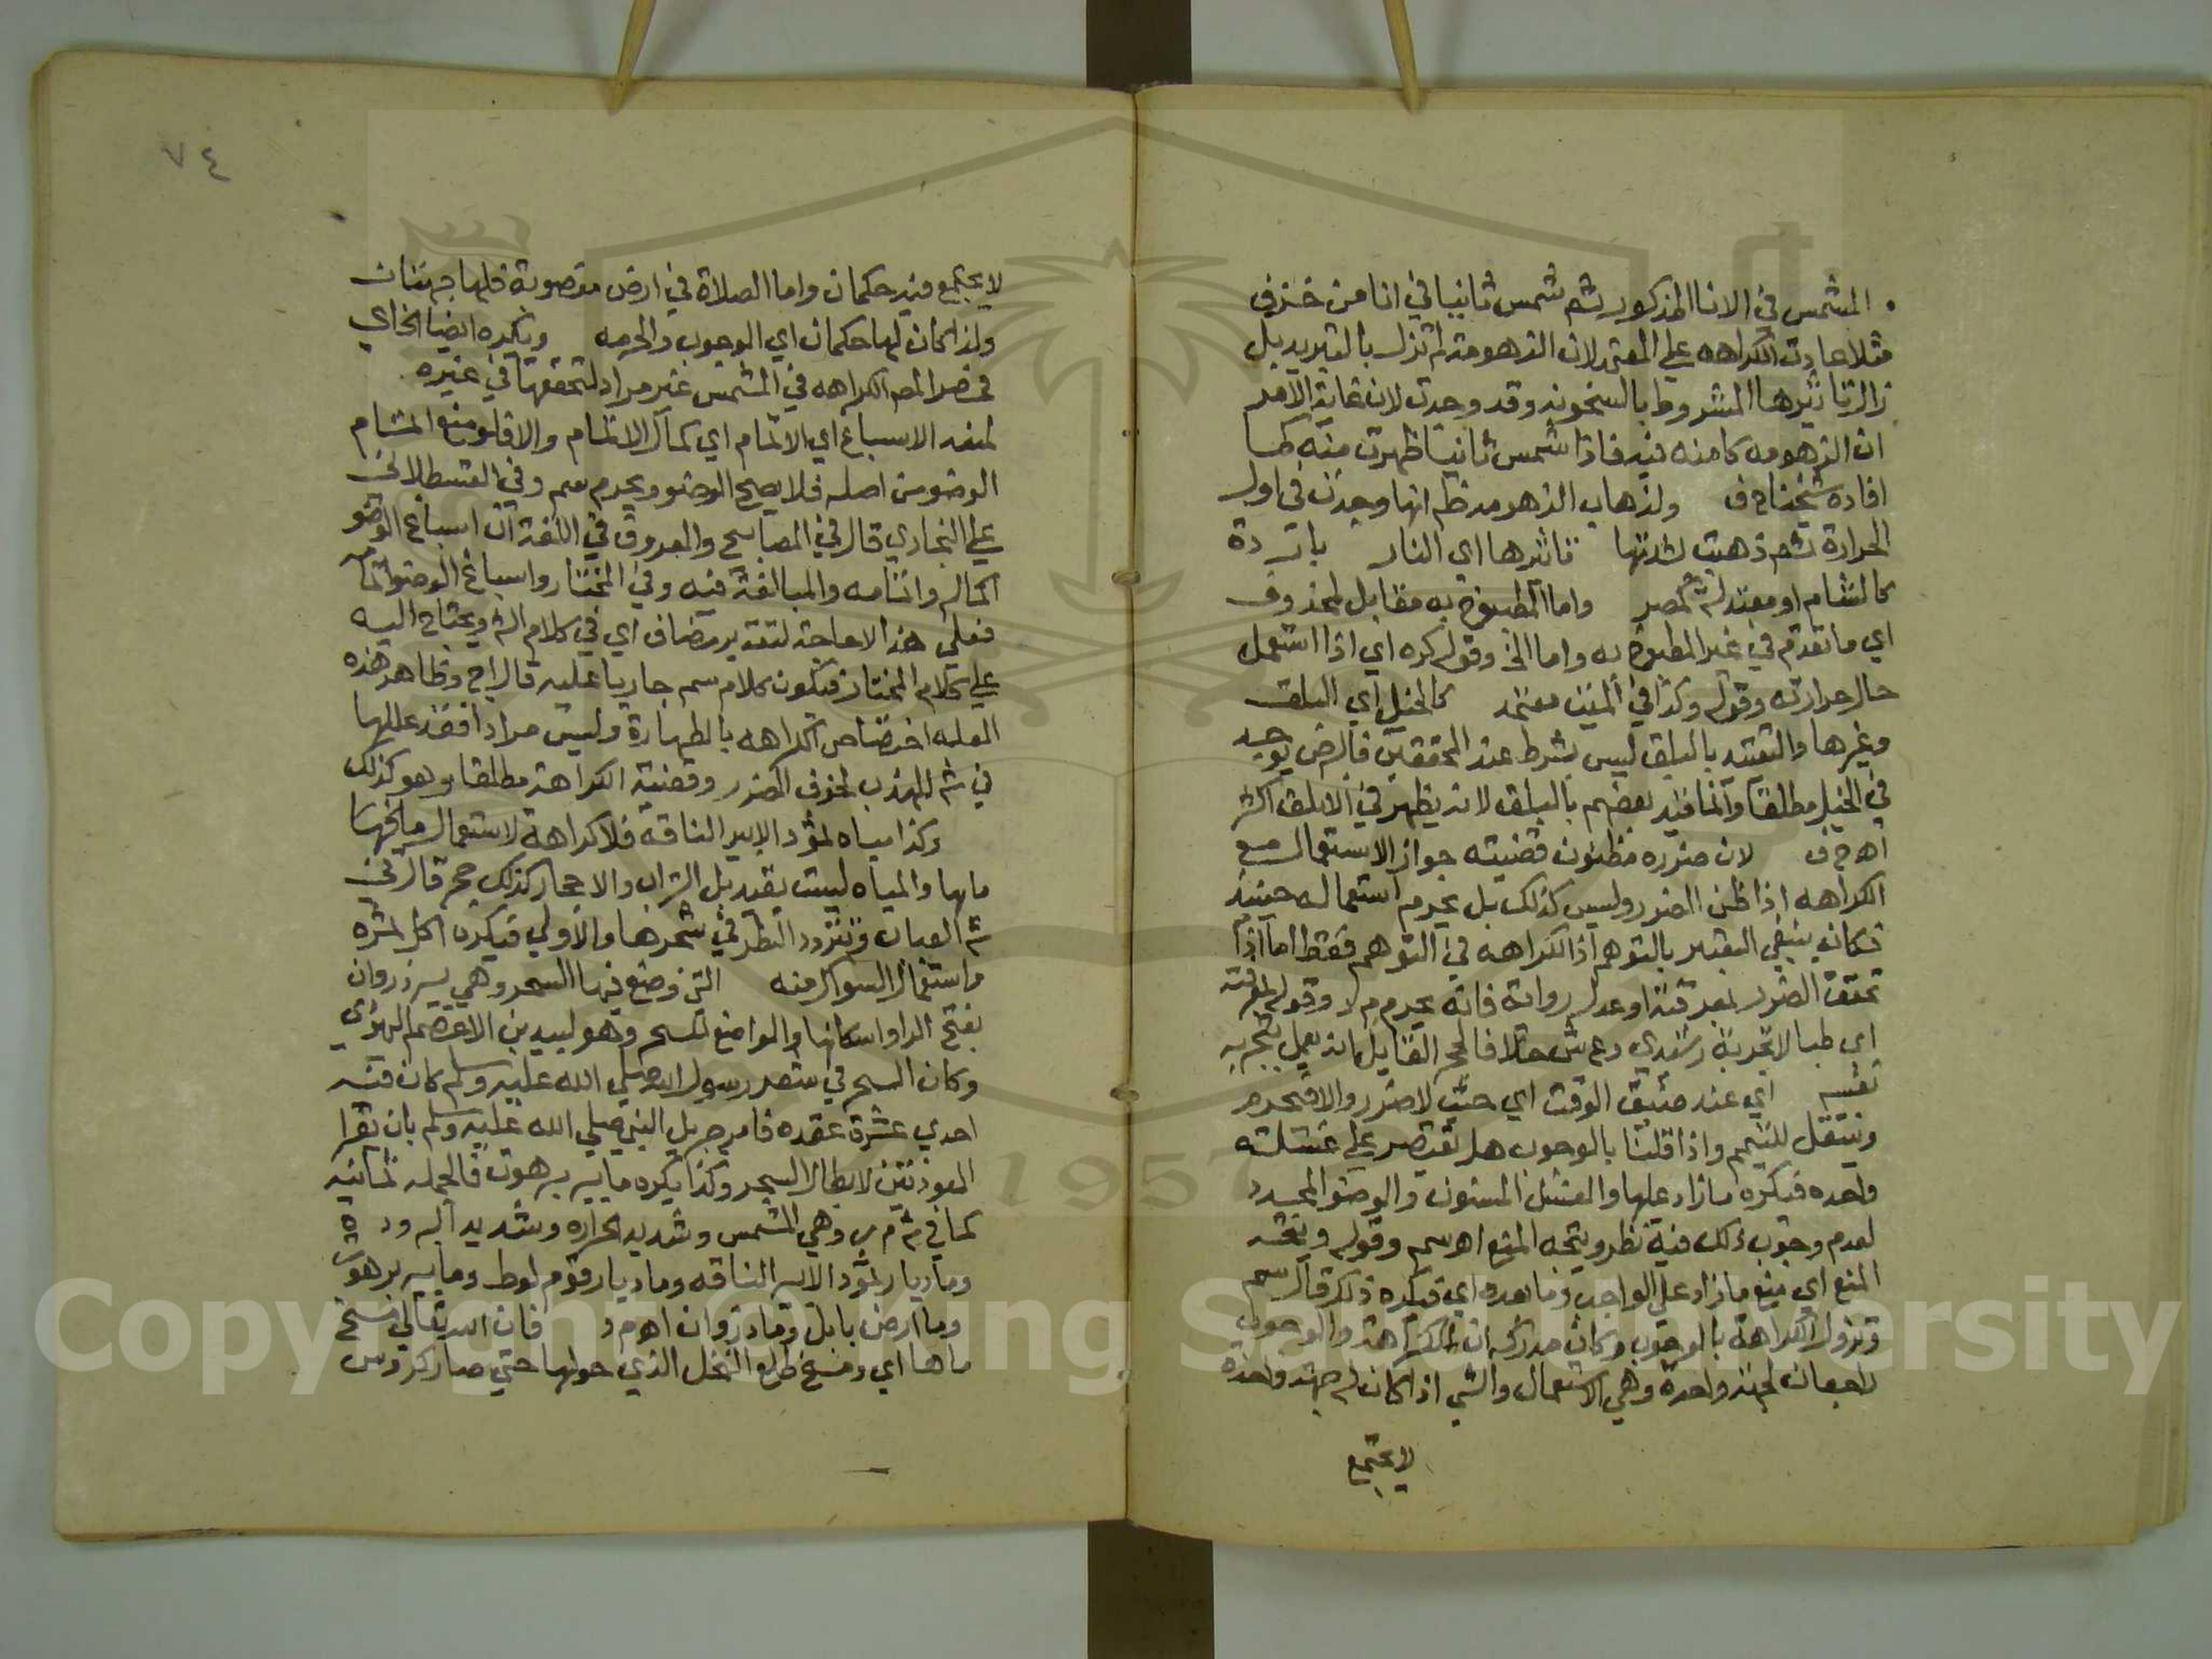 المشمس في الانا المذكور ثم شمس ثانيا في انا من خزف
مثلا عادت الكراهه علي المعتمد لان الزهومة لم تزل بالتبريد بل
زال تاثيرها المشروط بالسخونه وقد وجدت لان غاية الامر
ان الزهومه كامنه فيه فاذا شمس ثانيا ظهرت منه كما
افاده شيخنا ح ف ولذهاب الزهومه ظم انها وجدت في اول
الحرارة ثم ذهبت لشدتها تاثيرها اي النار باردة
كالشام او معتدله كمصر واما المطبوخ به مقابل لمحذوف
اي ما تقدم في غير المطبوخ به واما الخ وقوله كره اي اذا استعمل
حال حرارته وقوله وكذا في المني معتمد كالخيل اي البلق
وغيرها والتقييد بالبلق ليس بشرط عند المحققين فالبرص يوجد
في الخيل مطلقا وانما قيد بعضهم بالبلق لانه يظهر في الابلق اكثر
اه ح ف لان ضرره مظنون قضيته جواز الاستعمال مع
الكراهه اذا ظن الضرر وليس كذلك بل يحرم استعماله حينيذ
فكان ينبغي التعبير بالتوهم اذ الكراهه في التوهم فقط اما اذا
تحقق الضرر لمعرفته او عدل رواية فانه يحرم م ر وقوله لمعرفته
اي طبا لا تجربة رشيدي وع ش خلافا لحج القايل بانه يعمل بتجربه
نفسه اي عند ضيق الوقت اي حيث لا ضرر والا فيحرم
وينتقل للتيمم واذا قلنا بالوجوب هل يقتصر علي غسلة
واحده فيكره ما زاد عليها والغسل المسنون والوضو المجدد
لعدم وجوب ذلك فيه نظر ويتجه المنع اه سم وقوله ويتجه
المنع اي منع ما زاد علي الواجب وما بعده اي فيكره ذلك قال سم
وتزول الكراهة بالوجوب وكان مدركه ان الكراهة والوجوب
راجعان لجهة واحدة وهي الاستعمال والشي اذا كان له جهة واحدة
لا يجتمع
٧٤
لا يجتمع فيه حكمان واما الصلاة في ارض مغصوبة فلها جهتان
ولذا كان لها حكمان اي الوجوب والحرمه ويكره ايضا الخ اي
فحصر المص الكراهه في المشمس غير مراد لتحققها في غيره
لمنعه الاسباغ اي الاتمام اي كمال الاتمام والا فلو منع التمام
الوضو من اصله فلا يصح الوضو ويحرم سم وفي القسطلاني
علي البخاري قال في المصابيح والمعروف في اللغة ان اسباغ الوضو
اكماله واتمامه والمبالغة فيه وفي المختار واسباغ الوضو اتمامه
فعلي هذا لا حاجة لتقدير مضاف اي في كلام الش ويحتاج اليه
علي كلام المختار فيكون كلام سم جاريا عليه قال اج وظاهر هذه
العله اختصاص الكراهه بالطهارة وليس مرادا فقد عللها
في ش المهذب لخوف الضرر وقضيته الكراهة مطلقا وهو كذلك
وكذا مياه ثمود الا بير الناقه فلا كراهة لاستعمال مايها
مايها والمياه ليست بقيد بل التراب والاحجار كذلك حج قال في
ش العباب ويتردد النظر في شجرها والاولي فيكره اكل ثمره
واستعمال السواك منه التي وضع فيها السحر وهي بير ذروان
بفتح الرا واسكانها والواضع للسحر هو لبيد بن الاعصم اليهودي
وكان السحر في شعر رسول الله صلي الله عليه وسلم كان فيه
احدي عشرة عقده فامر جبريل النبي صلي الله عليه وسلم بان يقرا
المعوذتين لابطال السحر وكذا يكره ما بير برهوت فالجمله ثمانيه
كما في ش م ر وهي المشمس وشديد الحراره وشديد البرودة
وما ديار ثمود الا بير الناقه وما ديار قوم لوط وما بير برهوت
وما ارض بابل وما ذروان اه م د فان الله تعالي مسخ
ماها اي ومسخ طلع النخل الذي حولها حتي صار كروس